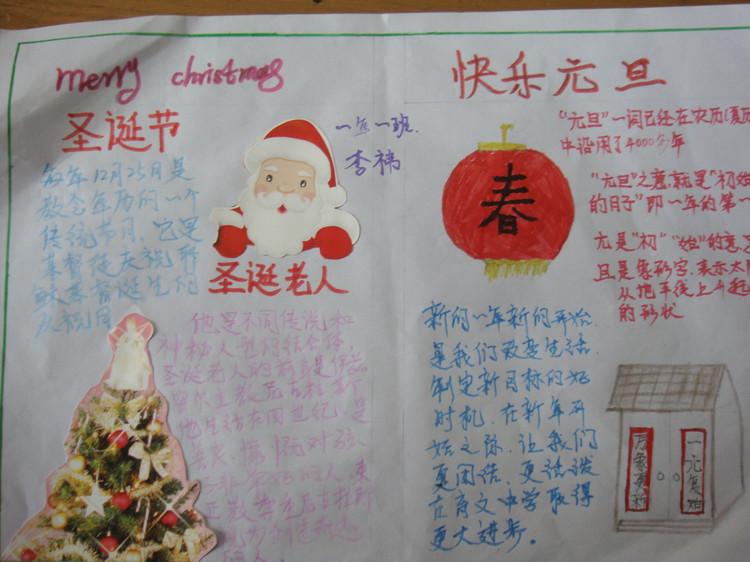 merry christmas
圣诞节
每年12月25日是
教会年历的一个
传统节日，它是
基督徒庆祝耶
稣基督诞生的
庆祝日
一年一班
李祎
圣诞老人
他是不同传说和
神秘人物的结合体，
圣诞老人的前身是
他生活在四世纪，是
快乐元旦
春
"元旦"一词已经在农历(夏历
中沿用了4000多年
"元旦"之意，就是"初始
的日子"即一年的第一
元是"初""始"的意
旦是象形字，表示太阳
从地平线上升起
的形状
新的一年新的开始
是我们改变生活
制定新目标的好
时机，在新年开
始之际，让我们
更团结，更活泼
在育文中学取得
更大进步。
万象更新
一元复始